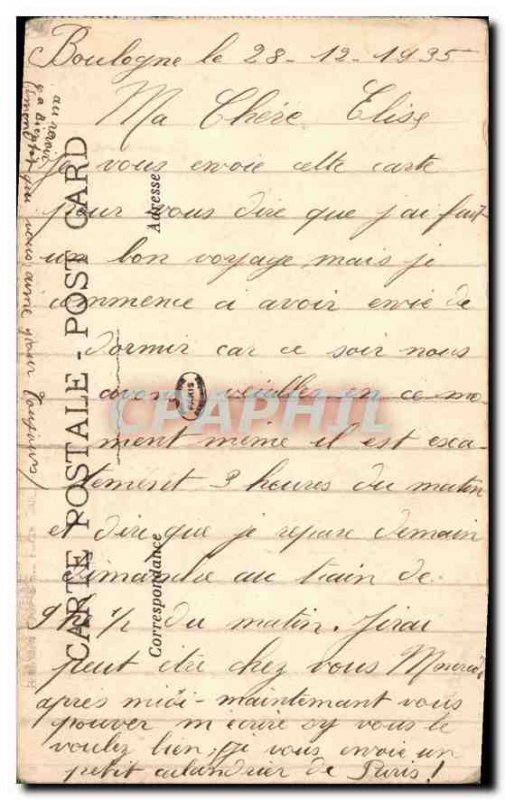 Boulogne le 28-12-1935
Ma Chère Elise
Je vous envoie cette carte
pour vous dire que j'ai fait
un bon voyage mais je
commence a avoir envie de
dormir car ce soir nous
avons veiller en ce mo
ment même il est exca-
tement 3 heures du matin
et dire que je repare demain
dimanche au train de
9h 1/2 du matin. J'irai
peut être chez vous Mercredi
après midi - maintenant vous
pouver m'écrire si vous le
voulez bien, je vous envoie un
petit calandrier de Paris!
au revoir
a Bientôt
qui vous aime pour toujours
CARTE POSTALE - POST CARD
Adresse
Correspondance
CPAPHIL
PARIS